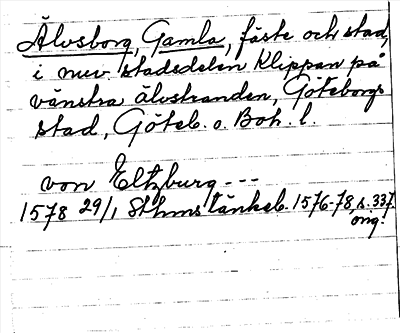 Älvsborg, Gamla, fäste och stad,
i nuv. stadsdelen Klippan på
vänstra älvstranden, Göteborgs
stad, Göteb. o. Boh. l.
von Eltzburg ---
1578 29/1 Sthms tänkeb. 1576-78, s. 337.
orig.